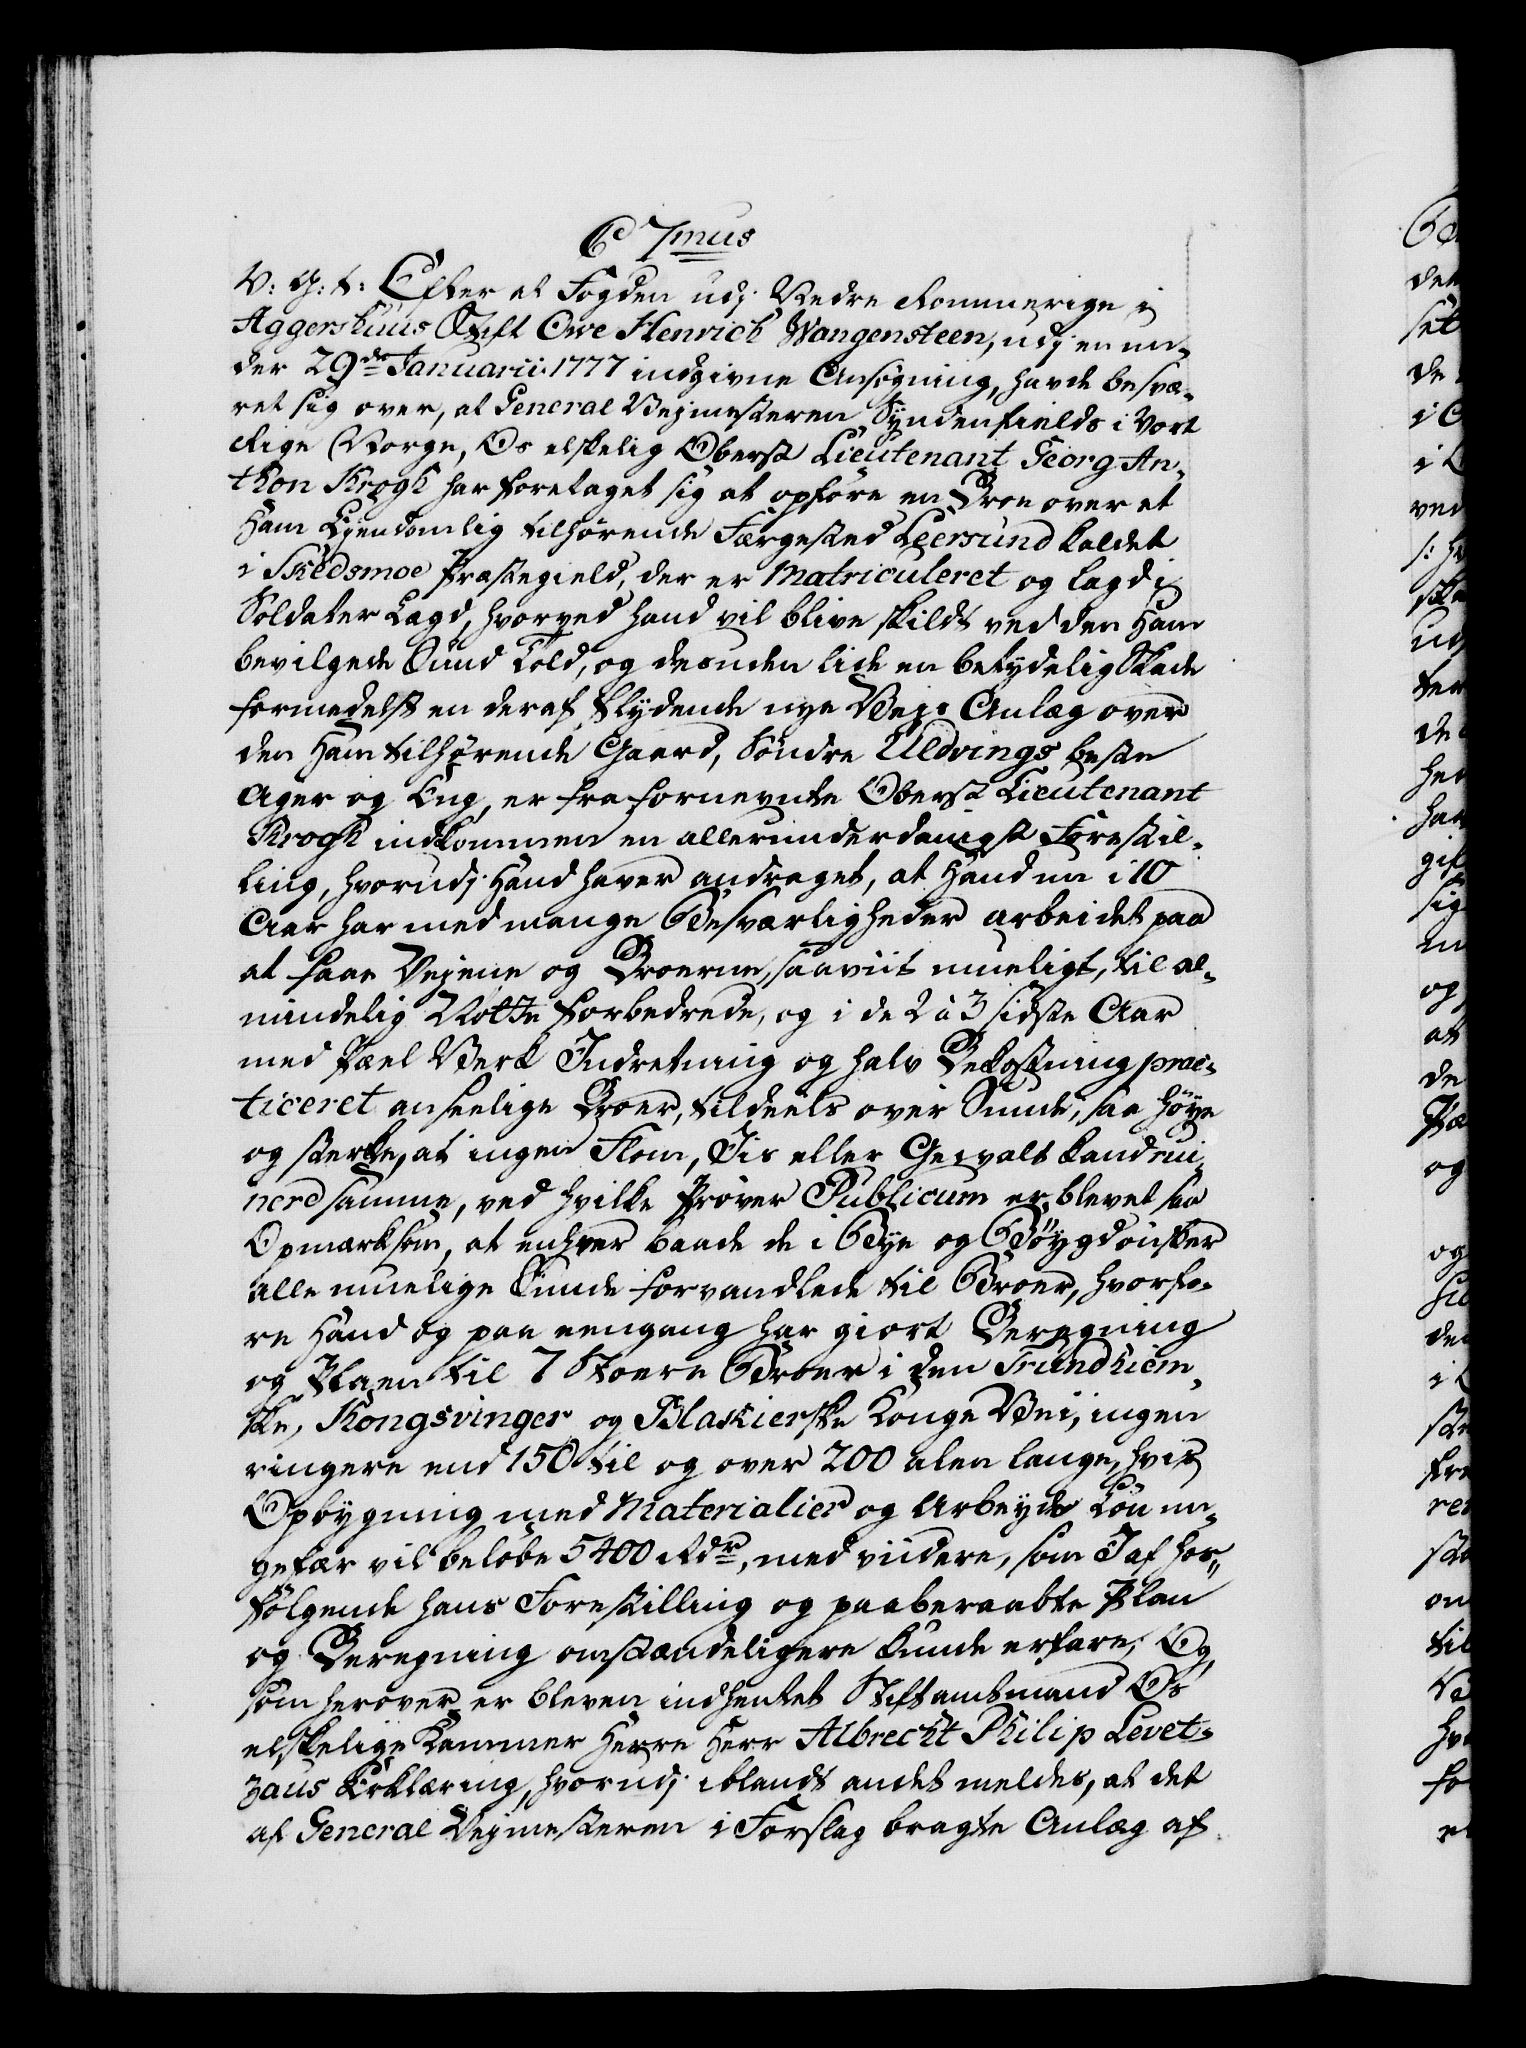 C 7mus
V: G: T: Efter at Fogden udj Nedre Rommerige i
Aggershuus Stift Ove Henrich Wangensteen, udj en un-
der 29de Januarii 1777 indgivne Ansøgning, havde besvæ-
ret sig over, at General Vejmesteren Syndenfields i Vort
Rige Norge, Os elskelig Oberst Lieutenant Georg An-
thon Krogh har foretaget sig at opføre en Broe over et
Ham Eyendomlig tilhørende Færgested Leersund kaldet
i Skedsmoe Præstegield, der er Matriculeret og lagd i
Soldater Lægd, hvorved hand vil blive skildt ved den Ham
bevilgede Sund Told, og desuden lide en betydelig Skade
formedelst en deraf flydende nye Veje Anlæg over
den Ham tilhørende Gaard, Søndre Uldvings beste
Ager og Eng, er fra fornevnte Oberst Lieutenant
Krogh indkommen en allerunderdanigst Forestil-
ling, hvorudj Hand haver andraget, at Hand nu i 10
Aar har med mange Besværligheder arbeidet paa
at faae Vejene og Broerne, saaviit mueligt, til al-
mindelig Nøtte forbedrede, og i de 2 à 3 sidste Aar
med Pæel Verk Indretning og halv Bekostning prac-
ticeret anseelige Broer, tildeels over Sunde, saa høye
og sterke, at ingen Flom, Iis eller Gevalt kand rui-
nere samme, ved hvilke Prøver Publicum er blevet saa
Opmærksom, at enhver baade de i Bye og Bøygd ønsker
alle muelige Sunde forvandlede til Broer, hvorfo-
re Hand og paa eengang har giort Beregning
og Plaen til 7 Stoere Broer i den Trundhiem-
ske, Kongsvinger og Blaskierske Konge Vei, ingen
ringere end 150 til og over 200 alen lange, hvis
Opbygning med Materialier og Arbeyds Løn un-
gefær vil beløbe 5400 Rdr, med viidere, som I af hos-
følgende hans Forestilling og paaberaabte Plan
og Beregning omstændeligere kunde erfare; Og
som herover er bleven indhentet Stiftamtmand Os
elskelige Kammer Herre Herr Albrecht Philip Levet-
zaus Erklæring, hvorudj iblandt andet meldes, at det
af General Vejmesteren i Forslag bragte Anlæg af